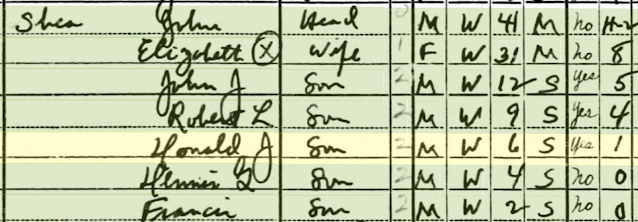 Shea John Head 0 M W 41 M no H-2
Elizabeth X Wife 1 F W 31 M no 8
John J Son 2 M W 12 S yes 5
Robert L Son 2 M W 9 S yes 4
Donald J Son 2 M W 6 S yes 1
Son 2 M W 4 S no 0
Francis Son 2 M W 2 S no 0